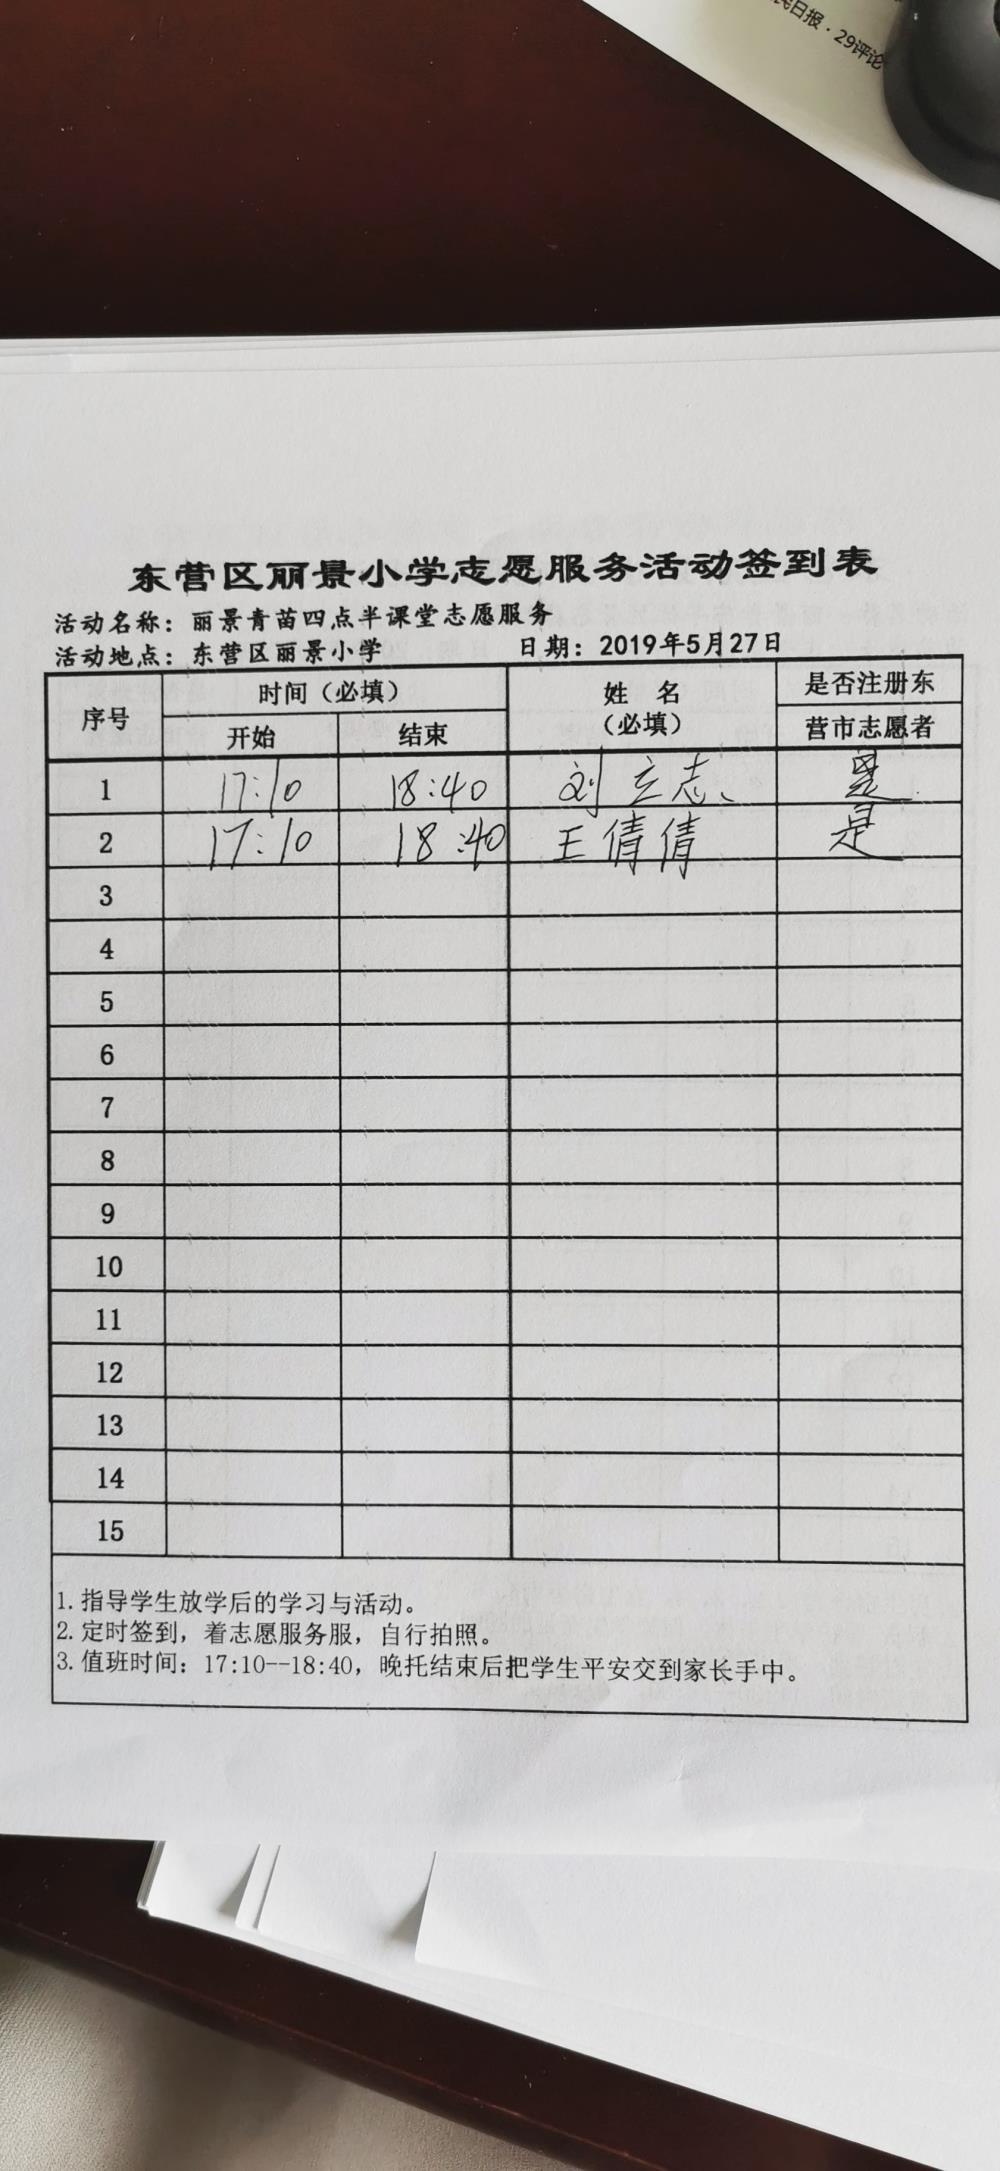 民日报·29评论
东营区丽景小学志愿服务活动签到表
活动名称：丽景青苗四点半课堂志愿服务
活动地点：东营区丽景小学 日期：2019年5月27日
序号 时间（必填） 姓 名（必填） 是否注册东营市志愿者
开始 结束
1 17:10 18:40 刘立志、 是
2 17:10 18:40 王倩倩 是
3
4
5
6
7
8
9
10
11
12
13
14
15
1. 指导学生放学后的学习与活动。
2. 定时签到，着志愿服务服，自行拍照。
3. 值班时间：17:10--18:40，晚托结束后把学生平安交到家长手中。